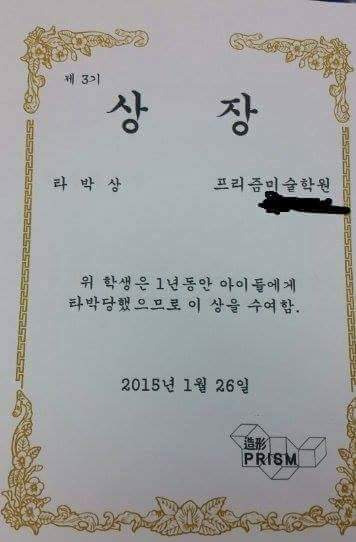 제 3기
상 장
타 박 상 프리즘미술학원
위 학생은 1년동안 아이들에게
타박당했으므로 이 상을 수여함.
2015년 1월 26일
造形
PRISM